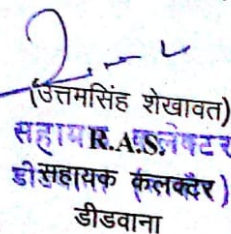 (उत्तमसिंह शेखावत)
सहायक कलेक्टर
R.A.S.
सहायक कलक्टर)
डीडवाना